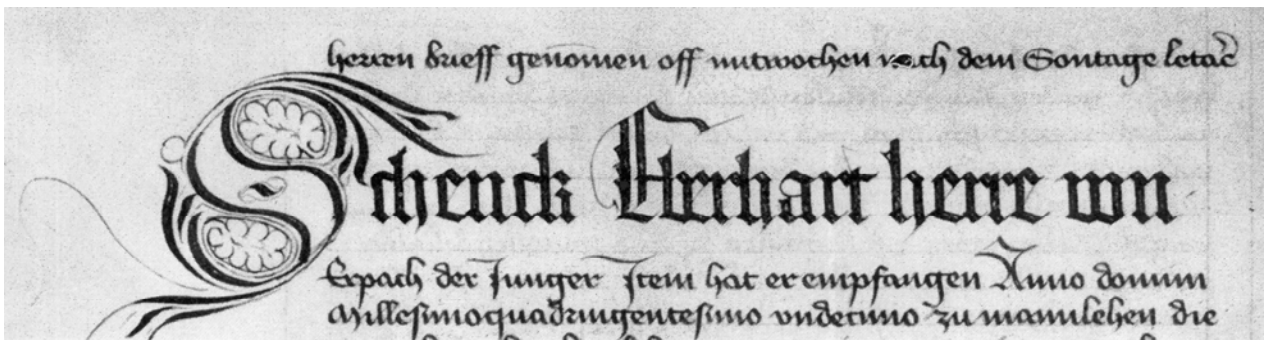 herren brieff genōmen off mitwochen nach dem Sontage letar̄
Schenck Eberhart herre von
Erpach der Junger Item hat er empfangen Anno domini
Millesimoquadringentesimo vndecimo zu manlehen die